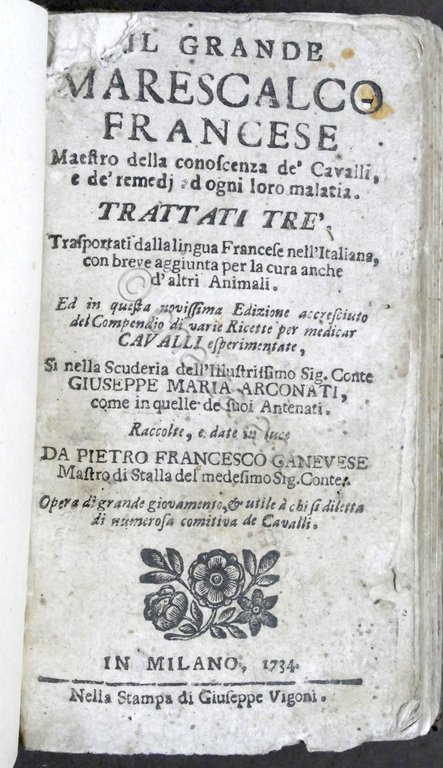 IL GRANDE
MARESCALCO
FRANCESE
Maeſtro della conoſcenza de' Cavalli,
e de' remedj ad ogni loro malatia.
TRATTATI TRE',
Traſportati dalla lingua Franceſe nell'Italiana,
con breve aggiunta per la cura anche
d'altri Animali.
Ed in queſta noviſſima Edizione accreſciuto
del Compendio di varie Ricette per medicar
CAVALLI eſperimentate,
Sì nella Scuderia dell'Illuſtriſſimo Sig. Conte
GIUSEPPE MARIA ARCONATI,
come in quelle de ſuoi Antenati.
Raccolte, e date in luce
DA PIETRO FRANCESCO CANEVESE
Maſtro di Stalla del medeſimo Sig. Conte.
Opera di grande giovamento, & utile à chi ſi diletta
di numeroſa comitiva de Cavalli.
IN MILANO, 1734.
Nella Stampa di Giuſeppe Vigoni.